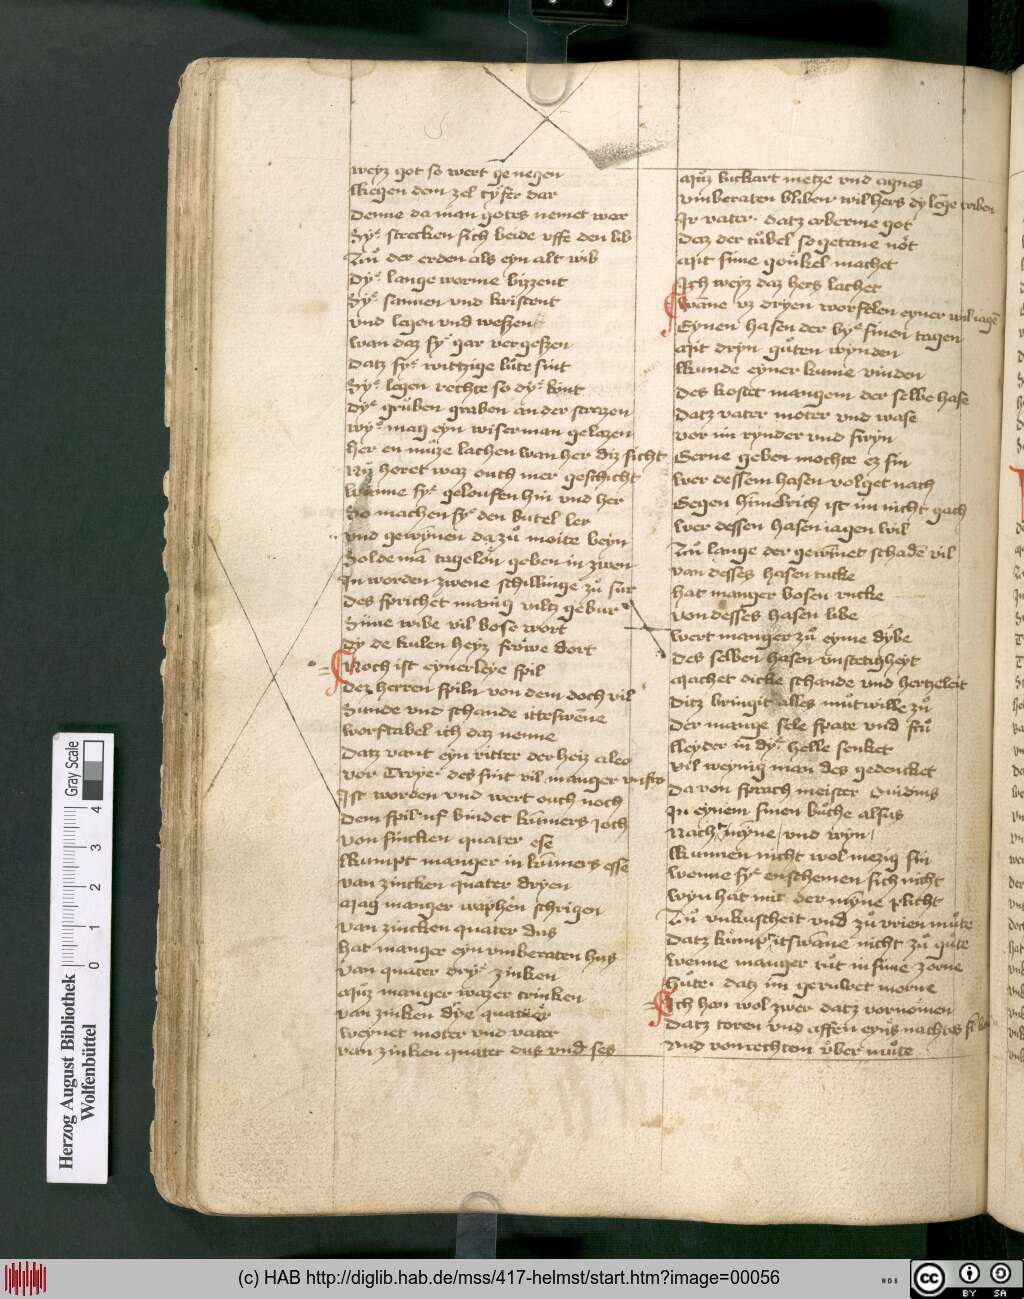 weyz got so wert ge negen
kegen dem zel tyscher dar
Denne da man gotes nemet war
Sye strecken sich beide vffe den lib
Zuͦ der erden als eyn alt wib
Dye lange worme bizzent
Sye sannen vnd kristent
vnd legen vnd weszen
wan daz sye gar vergeszen
Datz sye wittzige luͤte sint
Sye legen rechte so dye kint
Dye gruͤben graben an der strazen
wye mag eyn wiser man gelazen
her en muͤze lachen wan her diz sicht
Nu horet waz ouch mer geschicht
wanne sye geloufen hin vnd her
So machen sye den butel ler
vnd gewynen da zuͦ moite beyn
Solde man tageloͤn geben in zwen
In worden zwene schillinge zuͦ sur
Des sprichet manig viltz gebur
Sime wibe vil bose wort
Dy de kulen heyz frowe dort
Noch ist eynerleye spil
Dez herren spiln von dem doch vil
Sunde vnd schande itteswene
worstabel ich daz nenne
Datz vant eyn ritter der heiz aleo
vor Troye des sint vil manger vnfro
Ist worden vnd wert ouch noch
Dem spil uf bindet kummers Joch
von sincken quater ese
kumpt manger in kummers esse
van zincken quater dryen
Mag manger waphen schrigen
van zincken quater dus
hat manger eyn vnberaten hus
van quater drye zinken
Muz manger wazer trinken
van zinken dye quater
weynet moter vnd vater
van zinken quater dus vnd ses
Muz luckart metze vnd agnes
vmberaten bliben wil hers dy lenge triben
Ir vater datz erberme got
Daz der tuͤbel so getane noͤt
Mit sime goukel machet
Ich weyz daz hers lachet
wanne vz dryen worfelen eyner wil iagen
Eynen hasen der bye sinen tagen
Mit dryn guͦten wynden
kunde eyner kume vinden
Des kostet mangem der selbe hase
Datz vater moter vnd wase
vor im rynder vnd swyn
Gerne geben mochte ez sin
wer dessem hasen volget nach
Gegen himelrich ist im nicht gach
wer dessen hasen iagen wil
Zuͦ lange der gewinnet schaden vil
van desses hasen tucke
hat manger bosen rucke
von desses hasen libe
wert manger zuͦ eyme dybe
Des selben hasen vnstetigheyt
Machet dicke schande vnd hertzeleit
Ditz bringit alles muͦtwille zuͦ
Der mange sele spate vnd fruͦ
leyder in dye helle senket
vil weynig man des gedencket
Da von sprach meister Ouidius
In eynem sinen buͦche alsus
Nacht mynne vnd wyn
kunnen nicht wol mezig sin
wenne sye enschemen sich nicht
wyn hat mit der mynne plicht
Zuͦ vnkuscheit vnd zuͦ vrien muͦte
Datz kumpt itswanne nicht zuͦ guͦte
wenne manger tuͦt in sime zorne
huͦte datz im geruwet morne
Ich han wol zwer datz vornomen
Datz toren vnd affen eyns nachtes
vnd von rechtem vͤber muͦte
Herzog August Bibliothek
Wolfenbüttel
Gray Scale
0 1 2 3 4
(c) HAB http://diglib.hab.de/mss/417-helmst/start.htm?image=00056
WDB
cc
BY SA